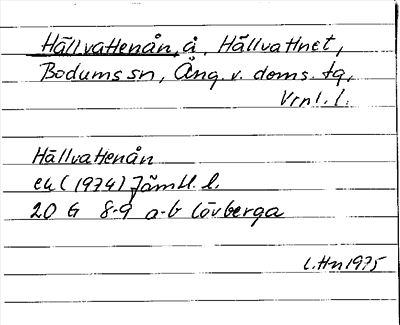 Hällvattenån, å, Hällvattnet,
Bodums sn, Ång. v. doms. tg,
Vrnl. l.
Hällvattenån
ek (1974) Jämtl. l.
20 G 8-9 a-b Lövberga
l. Hn 1975